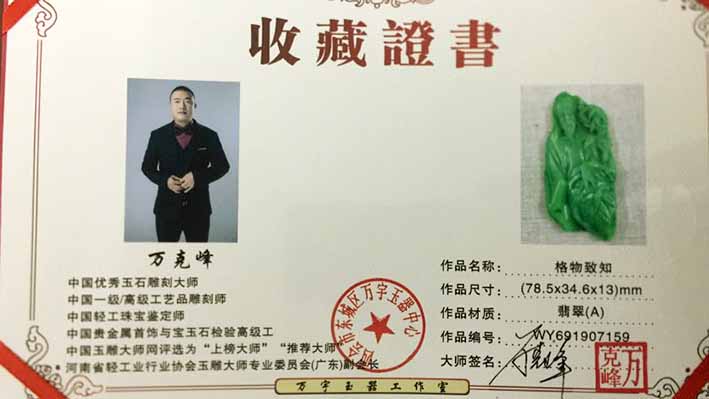 收藏證書
万克峰
中国优秀玉石雕刻大师
中国一级/高级工艺品雕刻师
中国轻工珠宝鉴定师
中国贵金属首饰与宝玉石检验高级工
中国玉雕大师网评选为“上榜大师”“推荐大师”
河南省轻工业行业协会玉雕大师专业委员会(广东)副会长
作品名称: 格物致知
作品尺寸: (78.5x34.6x13)mm
作品材质: 翡翠(A)
作品编号: WY691907159
大师签名:
四会市东城区万宇玉器中心
万克峰
万宇玉器工作室